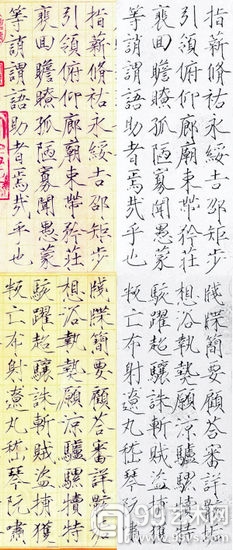 指薪脩祜永綏吉邵矩步
引領俯仰廊廟束帶矜莊
裵回瞻眺孤陋寡聞愚蒙
等誚謂語助者焉哉乎也
指薪脩祜永綏吉邵矩步
引領俯仰廊廟束帶矜莊
裵回瞻眺孤陋寡聞愚蒙
等誚謂語助者焉哉乎也
牋牒簡要顧答審詳骸垢
想浴執熱願凉驢騾犢特
駭躍超驤誅斬賊盜捕獲
叛亡布射遼丸嵇琴阮嘯
牋牒簡要顧答審詳骸垢
想浴執熱願凉驢騾犢特
駭躍超驤誅斬賊盜捕獲
叛亡布射遼丸嵇琴阮嘯
99艺术网